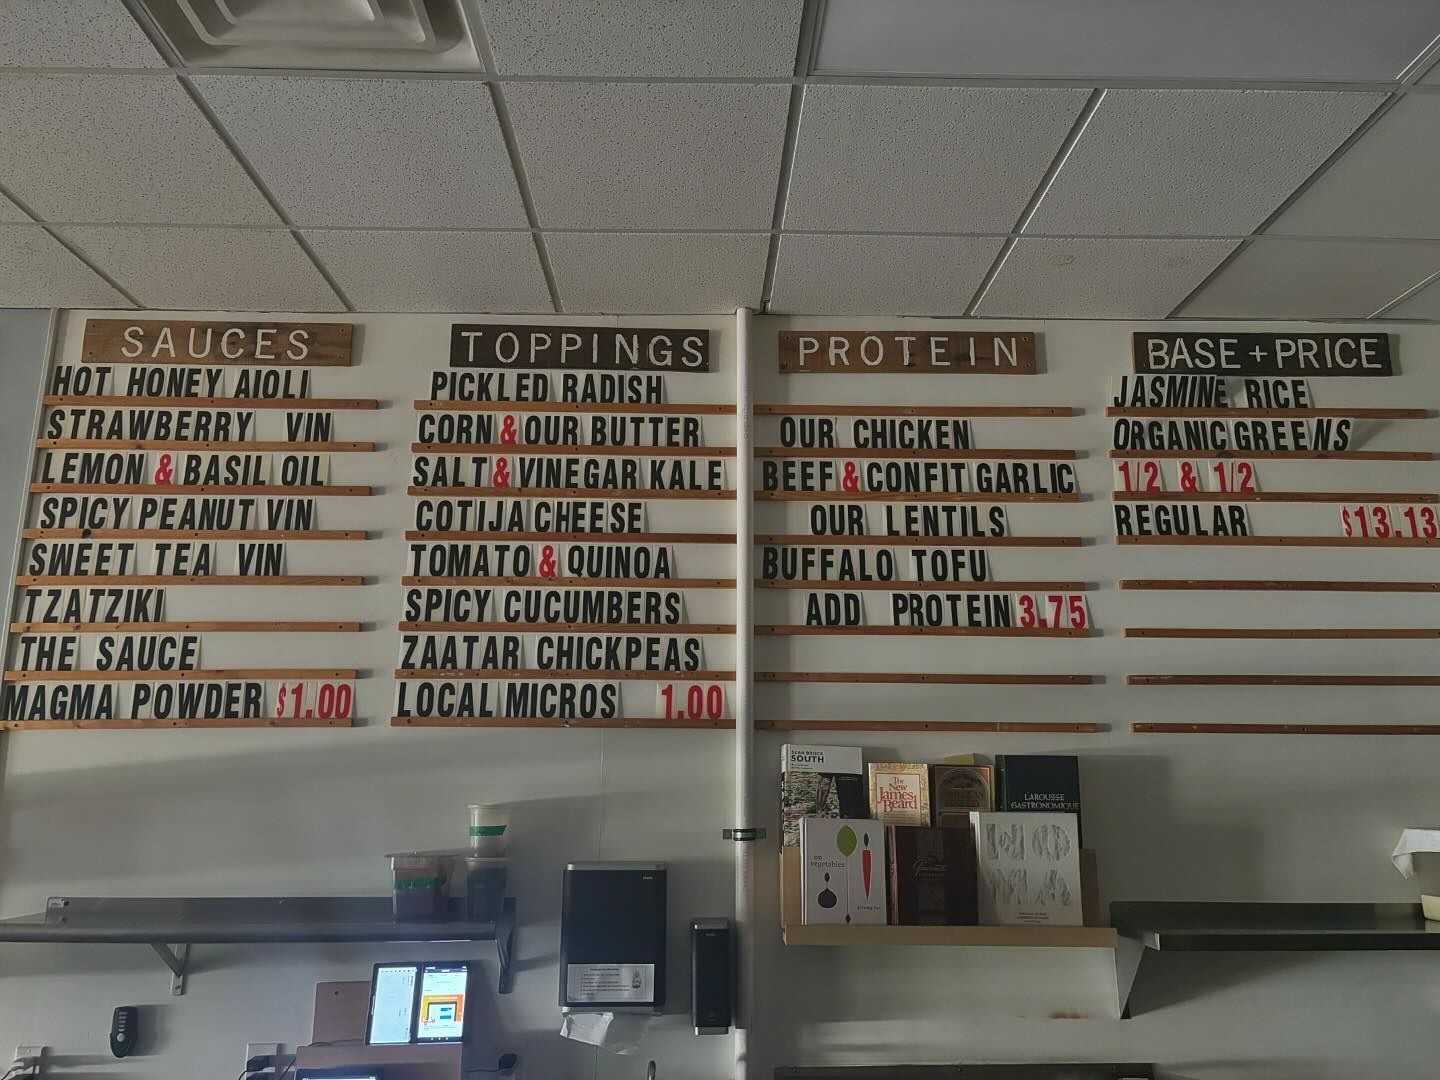 SAUCES
HOT HONEY AIOLI
STRAWBERRY VIN
LEMON & BASIL OIL
SPICY PEANUT VIN
SWEET TEA VIN
TZATZIKI
THE SAUCE
MAGMA POWDER $1.00
TOPPINGS
PICKLED RADISH
CORN & OUR BUTTER
SALT & VINEGAR KALE
COTIJA CHEESE
TOMATO & QUINOA
SPICY CUCUMBERS
ZAATAR CHICKPEAS
LOCAL MICROS 1.00
PROTEIN
OUR CHICKEN
BEEF & CONFIT GARLIC
OUR LENTILS
BUFFALO TOFU
ADD PROTEIN 3.75
BASE + PRICE
JASMINE RICE
ORGANIC GREENS
1/2 & 1/2
REGULAR $13.13
SEAN BROCK
SOUTH
The
New
James
Beard
LAROUSSE
GASTRONOMIQUE
on
vegetables
jeremy fox
NO
MA